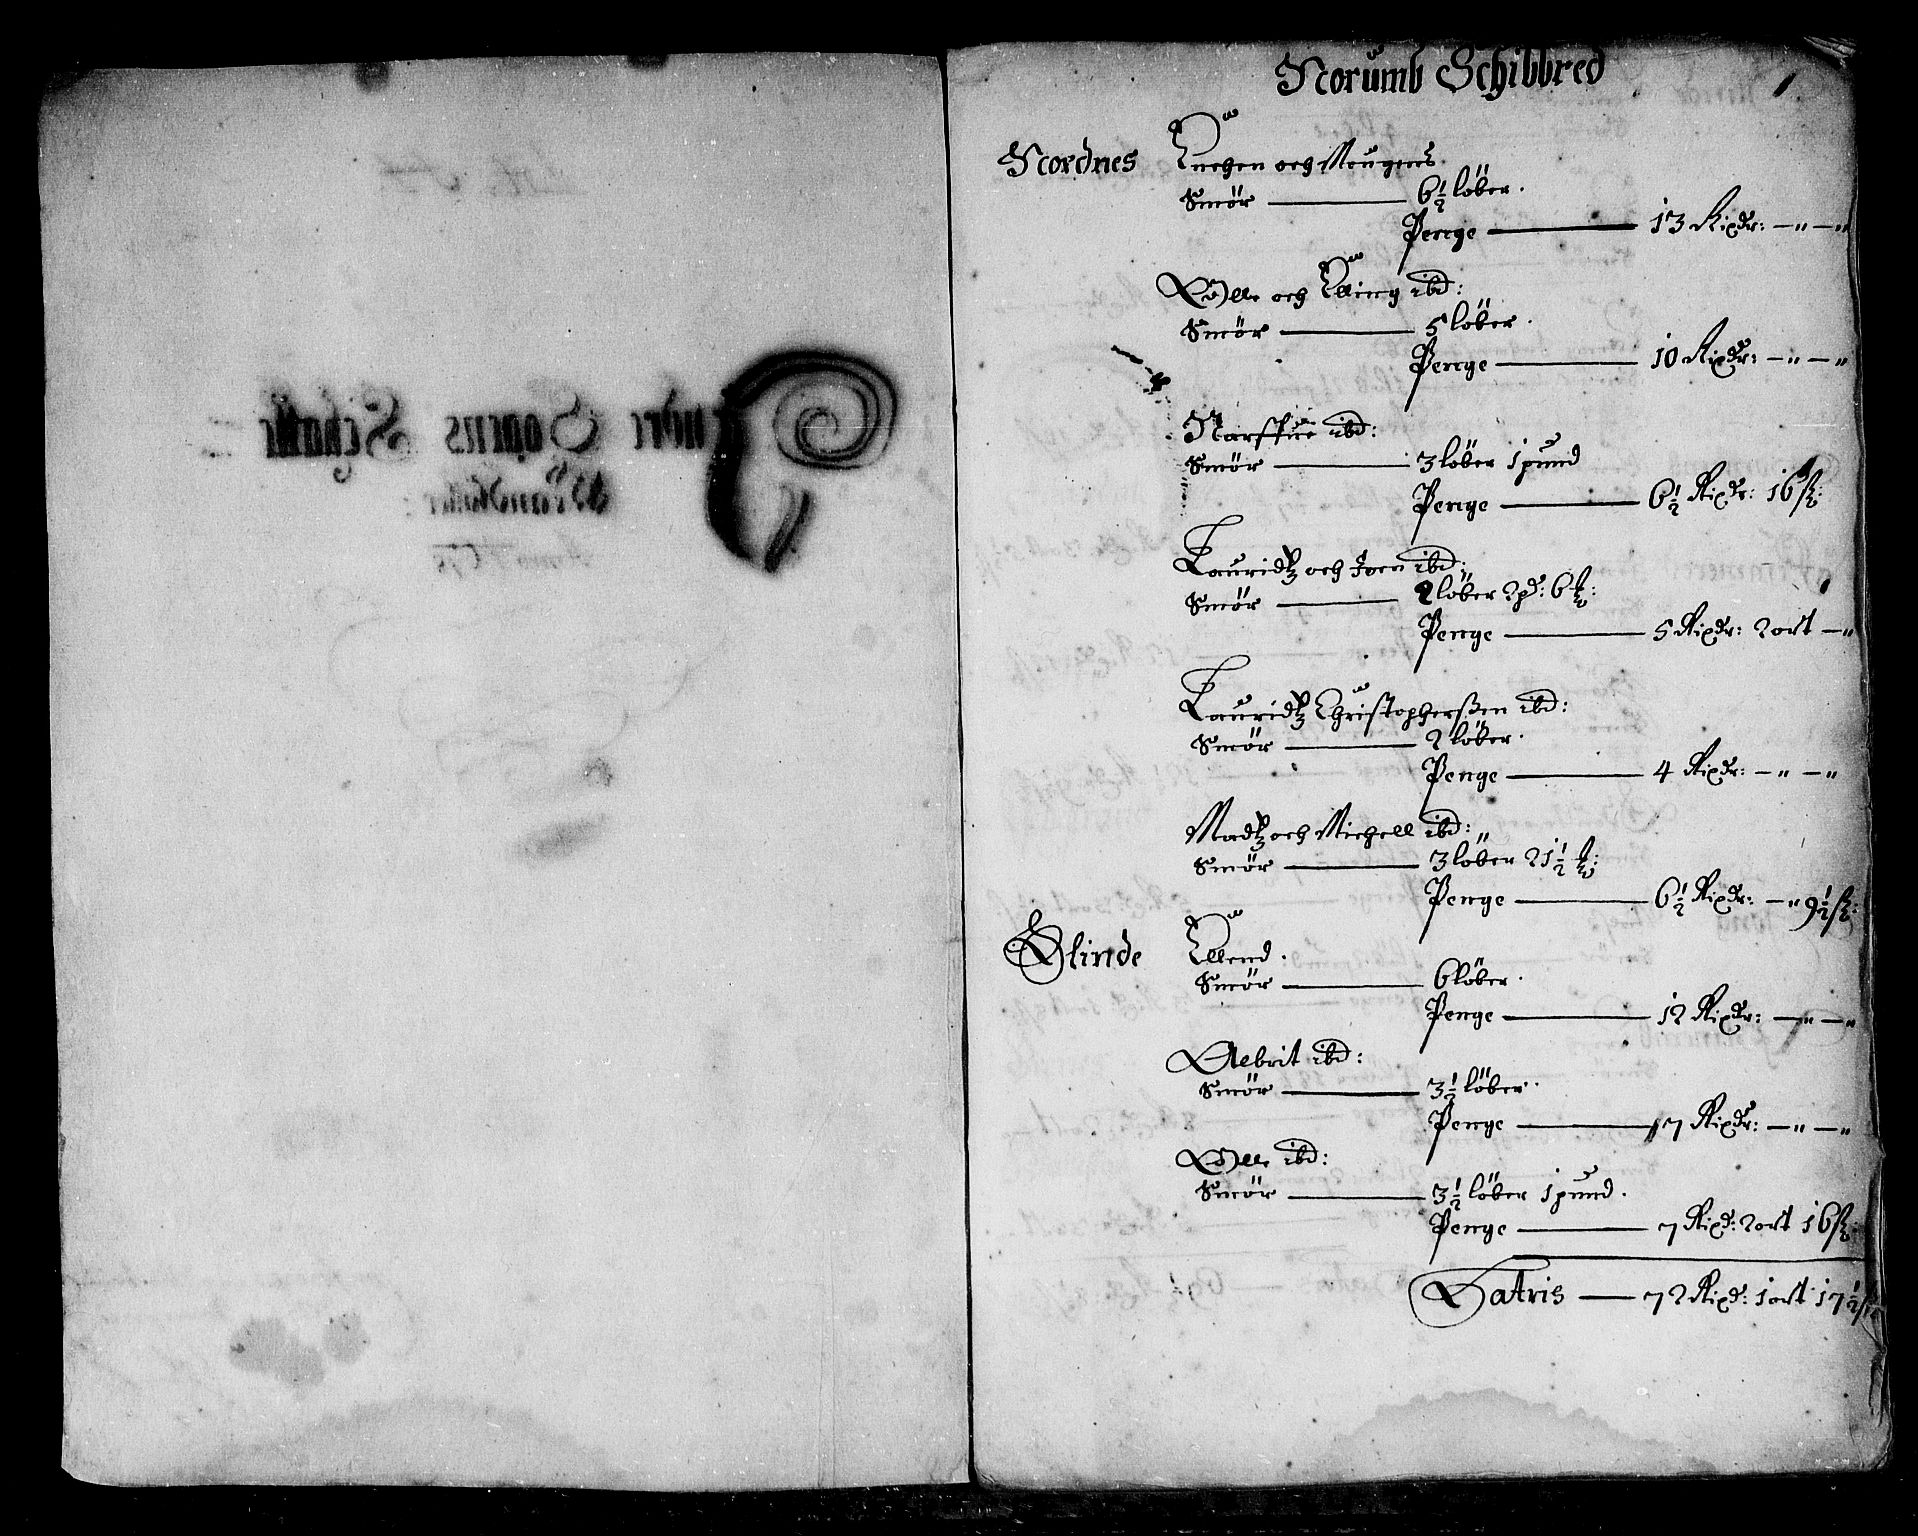 Norumb Schibbred
1
Nordnes
Knegen och Mougens
Smör — 6½ löber.
Penge — 13 Rixdr: — " — "
Olle och Elling ibd:
Smör — 5 löber.
Penge — 10 Rixdr: — " — "
ibd:
Smör — 3 löber 1 pund
Penge — 6½ Rixdr: 16 ß:
Lauridtz och Joen ibd:
Smör — 2 löber 2 pd: 6 ℔:
Penge — 5 Rixdr: 2 ort — "
Lauridtz Christopherßen ibd:
Smör — 2 löber.
Penge — 4 Rixdr: — " — "
Madtz och Michell ibd:
Smör — 3 löber 21½ ℔:
Penge — 6½ Rixdr: — " 9½ ß:
Slinde
Ellend.
Smör — 6 löber.
Penge — 12 Rixdr: — " — "
Albrit ibd:
Smör — 3½ löber.
Penge — 7 Rixdr: — " — "
Olle ibd:
Smör — 3½ löber 1 pund.
Penge — 7 Rixd: 2 ort 16 ß:
Latris — 72 Rixd: 1 ort 17½ ß